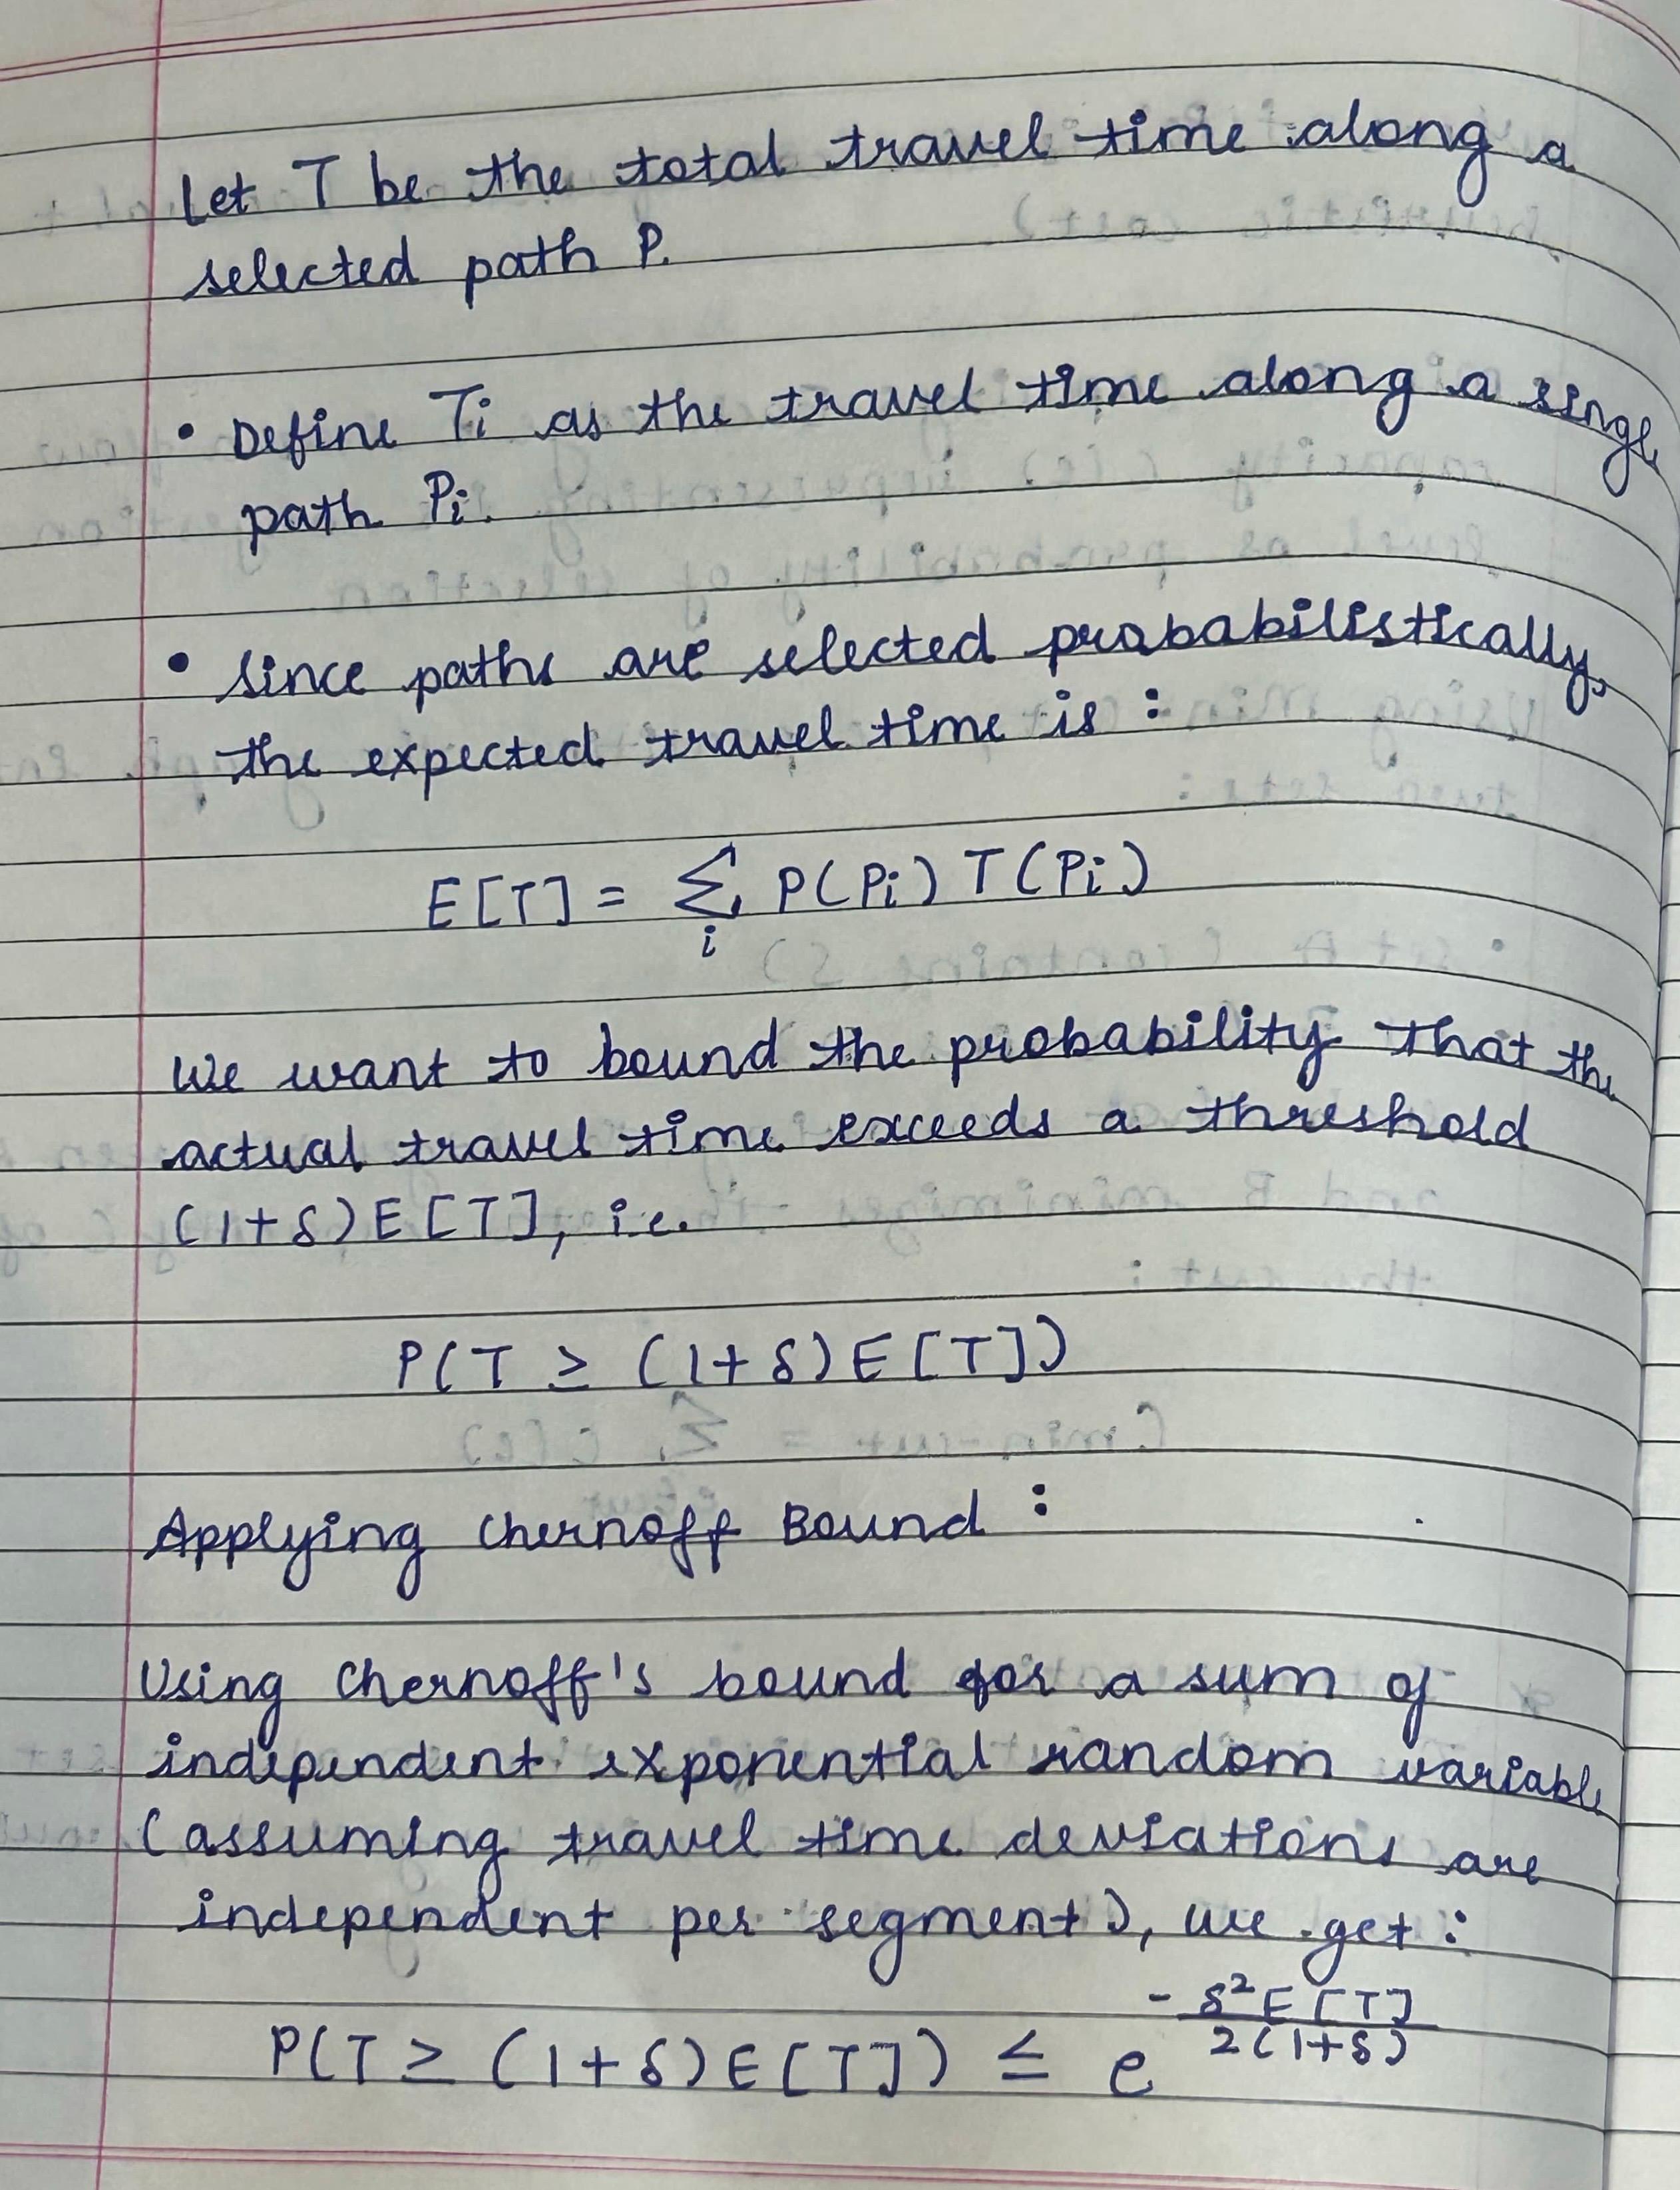 Let T be the total travel time along a
selected path P.
• Define Ti as the travel time along a singl
path Pi.
• Since paths are selected probabilistically,
the expected travel time is :
E[T] = ∑ P(Pi) T(Pi)
i
We want to bound the probability that the
actual travel time exceeds a threshold
(1+δ)E[T], i.e.
P(T ≥ (1+δ)E[T])
Applying Chernoff Bound :
Using Chernoff's bound for a sum of
independent exponential random variable
(assuming travel time deviations are
independent per segment), we get :
P(T ≥ (1+δ)E[T]) ≤ e^(-δ²E[T]/2(1+δ))